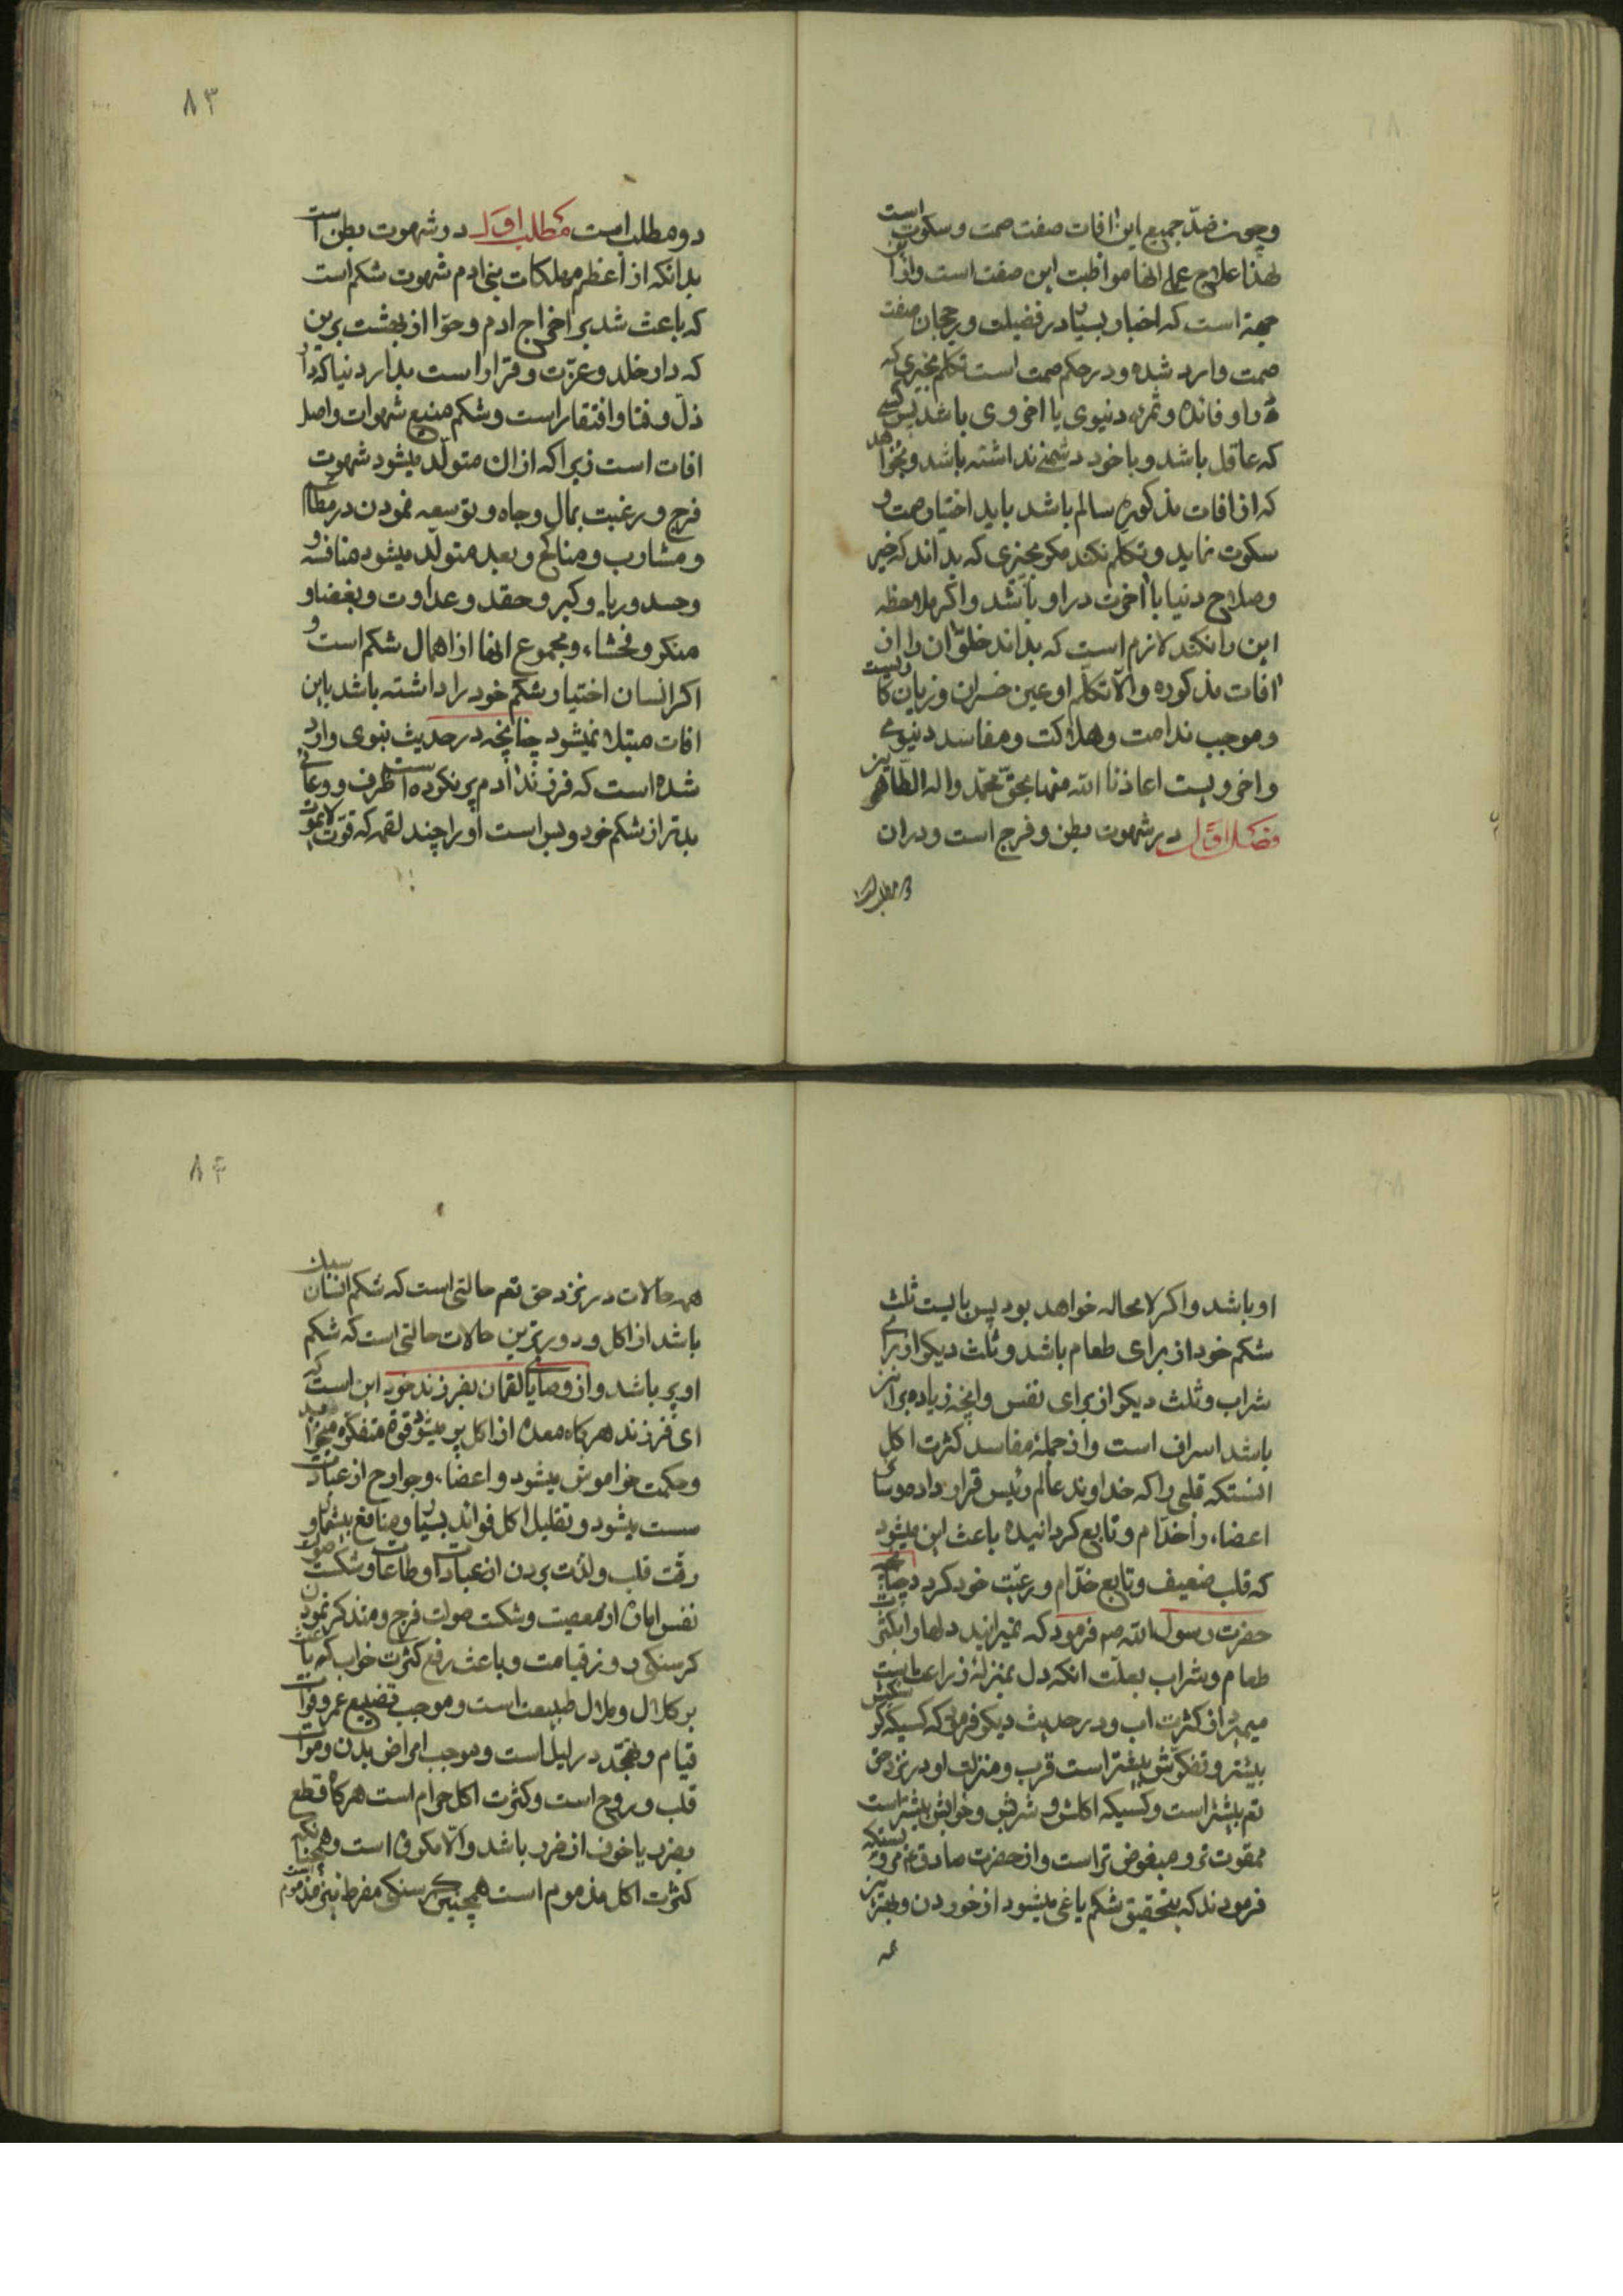 وچون ضدّ جمیع این افات صفت صمت و سکوت است
لهذا علاج عملی انها مواظبت این صفت است و از این
جهة است که اخبار بسیار در فضیلت و رجحان صفت
صمت وارد شده و در حکم صمت است تکلم بچیزی که
او فائده و ثمرۀ دنیوی یا اخروی باشد پس کسی
که عاقل باشد و با خود دشمنی نداشته باشد و بخواهد
که از افات مذکوره سالم باشد باید اختیار صمت و
سکوت نماید و تکلم نکند مکر بچیزی که بداند که خیر
و صلاح دنیا یا اخرت در او باشد و اکر ملاحظه
این را نکند لازم است که بداند خلوّ ان را از ان
افات مذکوره والّا تکلّم او عین خسران و زیان کاریست
و موجب ندامت و هلاکت و مفاسد دنیوی
و اخرویست اعاذنا الله منها بحقّ محمّد واله الطّاهرین
فصل اوّل در شهوت بطن و فرج است و دران
دو مطلب است
۸۳
دو مطلب است مطلب اوّل در شهوت بطن است
بدانکه از اعظم مهلکات بنی ادم شهوت شکم است
که باعث شد بر اخراج ادم و حوّا از بهشت برین
که دار خلد و عزّت و قرار است بدار دنیا که دار
ذلّ و فنا و افتقار است و شکم منبع شهوات و اصل
افات است زیرا که از ان متولّد میشود شهوت
فرج و رغبت بمال و جاه و توسعه نمودن در مطاعم
و مشارب و مناکح و بعد متولّد میشود منافسه و
و حسد و ریا و کبر و حقد و عداوت و بغضا و
منکر و فحشاء و مجموع انها از اهمال شکم است و
اکر انسان اختیار شکم خود را داشته باشد باین
افات مبتلا نمیشود چنانچه در حدیث نبوی وارد
شده است که فرزند ادم پر نکرده است ظرف و وعائی
بدتر از شکم خود و بس است او را چند لقمه که قوّت لا یموت
او باشد و اکر لا محاله خواهد بود پس بایست ثلث
شکم خود از برای طعام باشد و ثلث دیکر از برای
شراب و ثلث دیکر از برای نفس و انچه زیاده بر این
باشد اسراف است و از جملۀ مفاسد کثرت اکل
انستکه قلبی را که خداوند عالم رئیس قرار داد و سائر
اعضاء را خدّام و تابع کردانیده باعث این میشود
که قلب ضعیف و تابع خدّام و رعیّت خود کردد چنانچه
حضرت رسول الله صم فرمود که نمیرانید دلها را بکثرت
طعام و شراب بعلّت انکه دل بمنزلۀ زراعت است
میمیرد از کثرت اب و در حدیث دیکر فرمود که کسیکه کرسنکیش
بیشتر و تفکّرش بیشتر است قرب و منزلت او در نزد حق
تعم بیشتر است و کسیکه اکلش و شربش و خوابش بیشتر است
ممقوت تر و مبغوض تر است و از حضرت صادق ع مرویستکه
فرمودند که بتحقیق شکم یاغی میشود از خوردن و بهترین
همه
۸۴
همه حالات در نزد حق تعم حالتی است که شکم انسان سبک
باشد از اکل و دورترین حالات حالتی است که شکم
او پر باشد و از وصایا لقمان بفرزند خود این است که
ای فرزند هرکاه معده از اکل پر میشود قوۀ متفکّره میخوابد
و حکمت خواموش میشود و اعضاء و جوارح از عبادت
سست میشود و تقلیل اکل فوائد بسیار و منافع بیشمار و
رقّت قلب و لذّت بردن از عبادات و طاعات و شکست صولت
نفس امّاره از معصیت و شکست صولت فرج و متذکر نمودن
کرسنکی روز قیامت و باعث رفع کثرت خواب که باعث
بر کلال و ملال طبیعت است و موجب تضییع عمر و فوات
قیام و تهجّد در لیل است و موجب امراض بدن و موات
قلب و روح است و کثرت اکل حرام است هرکاه قطع
بضرر یا خوف از ضرر باشد و الّا مکروه است و همچنانکه
کثرت اکل مذموم است همچنین کرسنکی مفرط نیز مذموم است